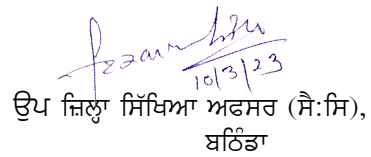 10/3/23
ਉਪ ਜ਼ਿਲ੍ਹਾ ਸਿੱਖਿਆ ਅਫਸਰ (ਸੈ:ਸਿ),
ਬਠਿੰਡਾ